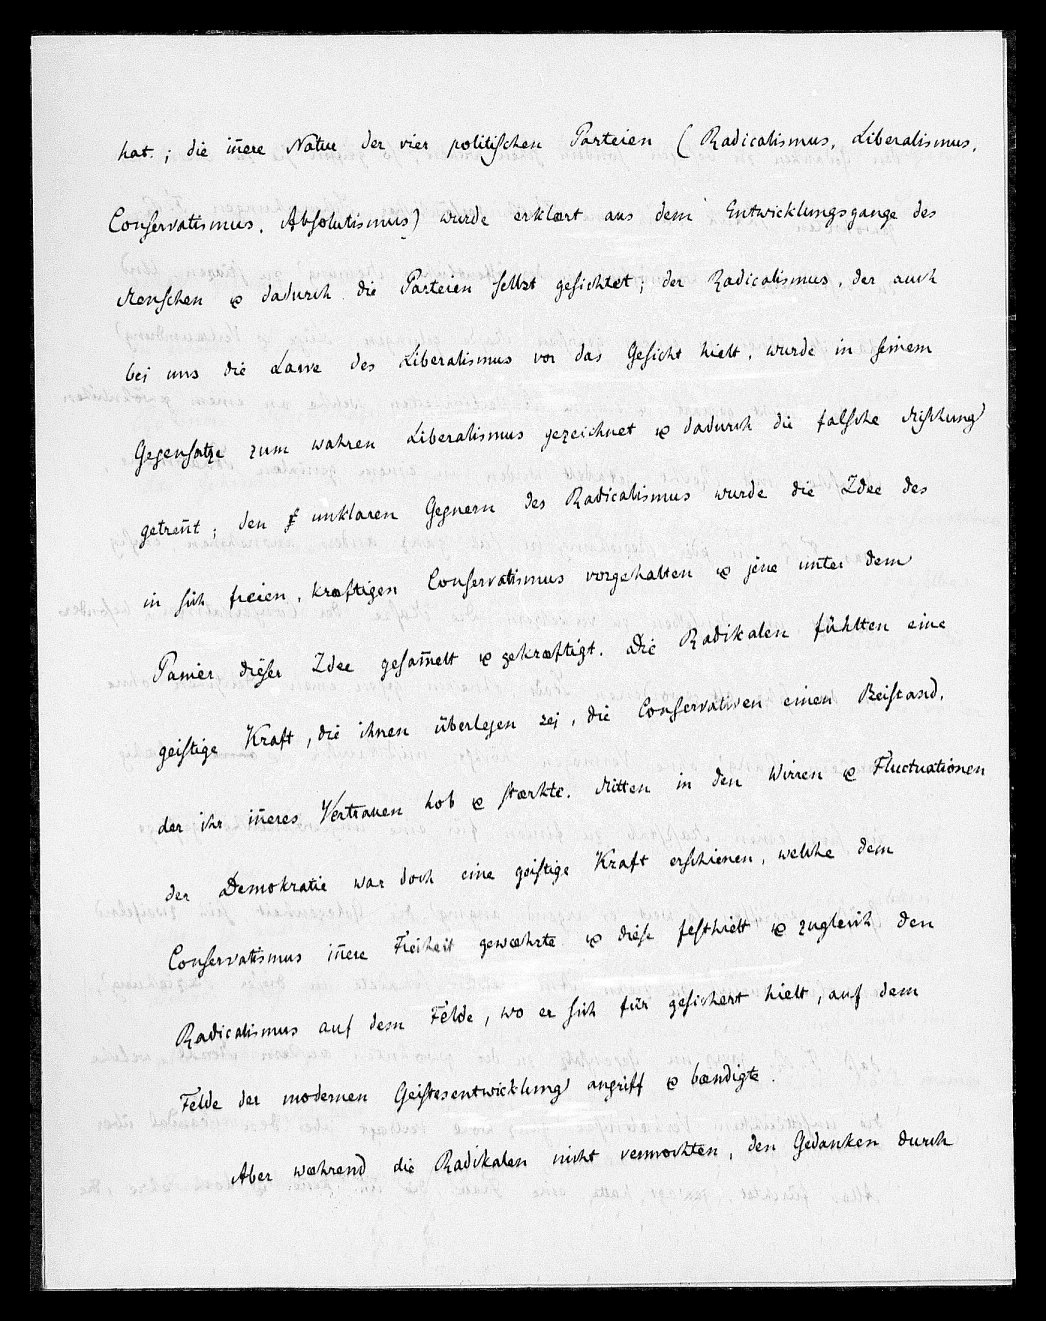 hat.; die iñere Natur der vier politischen Parteien (Radicalismus, Liberalismus,
Conservatismus, Absolutismus) wurde erklært aus dem Entwicklungsgange des
Menschen & dadurch die Parteien selbst gesichtet; der Radicalismus, der auch
bei uns die Larve des Liberalismus vor das Gesicht hielt, wurde in seinem
Gegensatze zum wahren Liberalismus gezeichnet & dadurch die falsche Mischung
getreñt; den unklaren Gegnern des Radicalismus wurde die Idee des
in sich freien, kræftigen Conservatismus vorgehalten & jene unter dem
Panier dieser Idee gesam̃elt & gekræftigt. Die Radikalen fühlten eine
geistige Kraft, die ihnen überlegen sej, die Conservativen einen Beistand,
der ihr iñeres Vertrauen hob & stærkte. Mitten in den Wirren & Fluctuationen
der Demokratie war doch eine geistige Kraft erschienen, welche dem
Conservatismus iñere Freiheit gewæhrte & diese festhielt & zugleich den
Radicalismus auf dem Felde, wo er sich für gesichert hielt, auf dem
Felde der modernen Geistesentwicklung angriff & bændigte.
Aber wæhrend die Radikalen nicht vermochten, den Gedanken durch